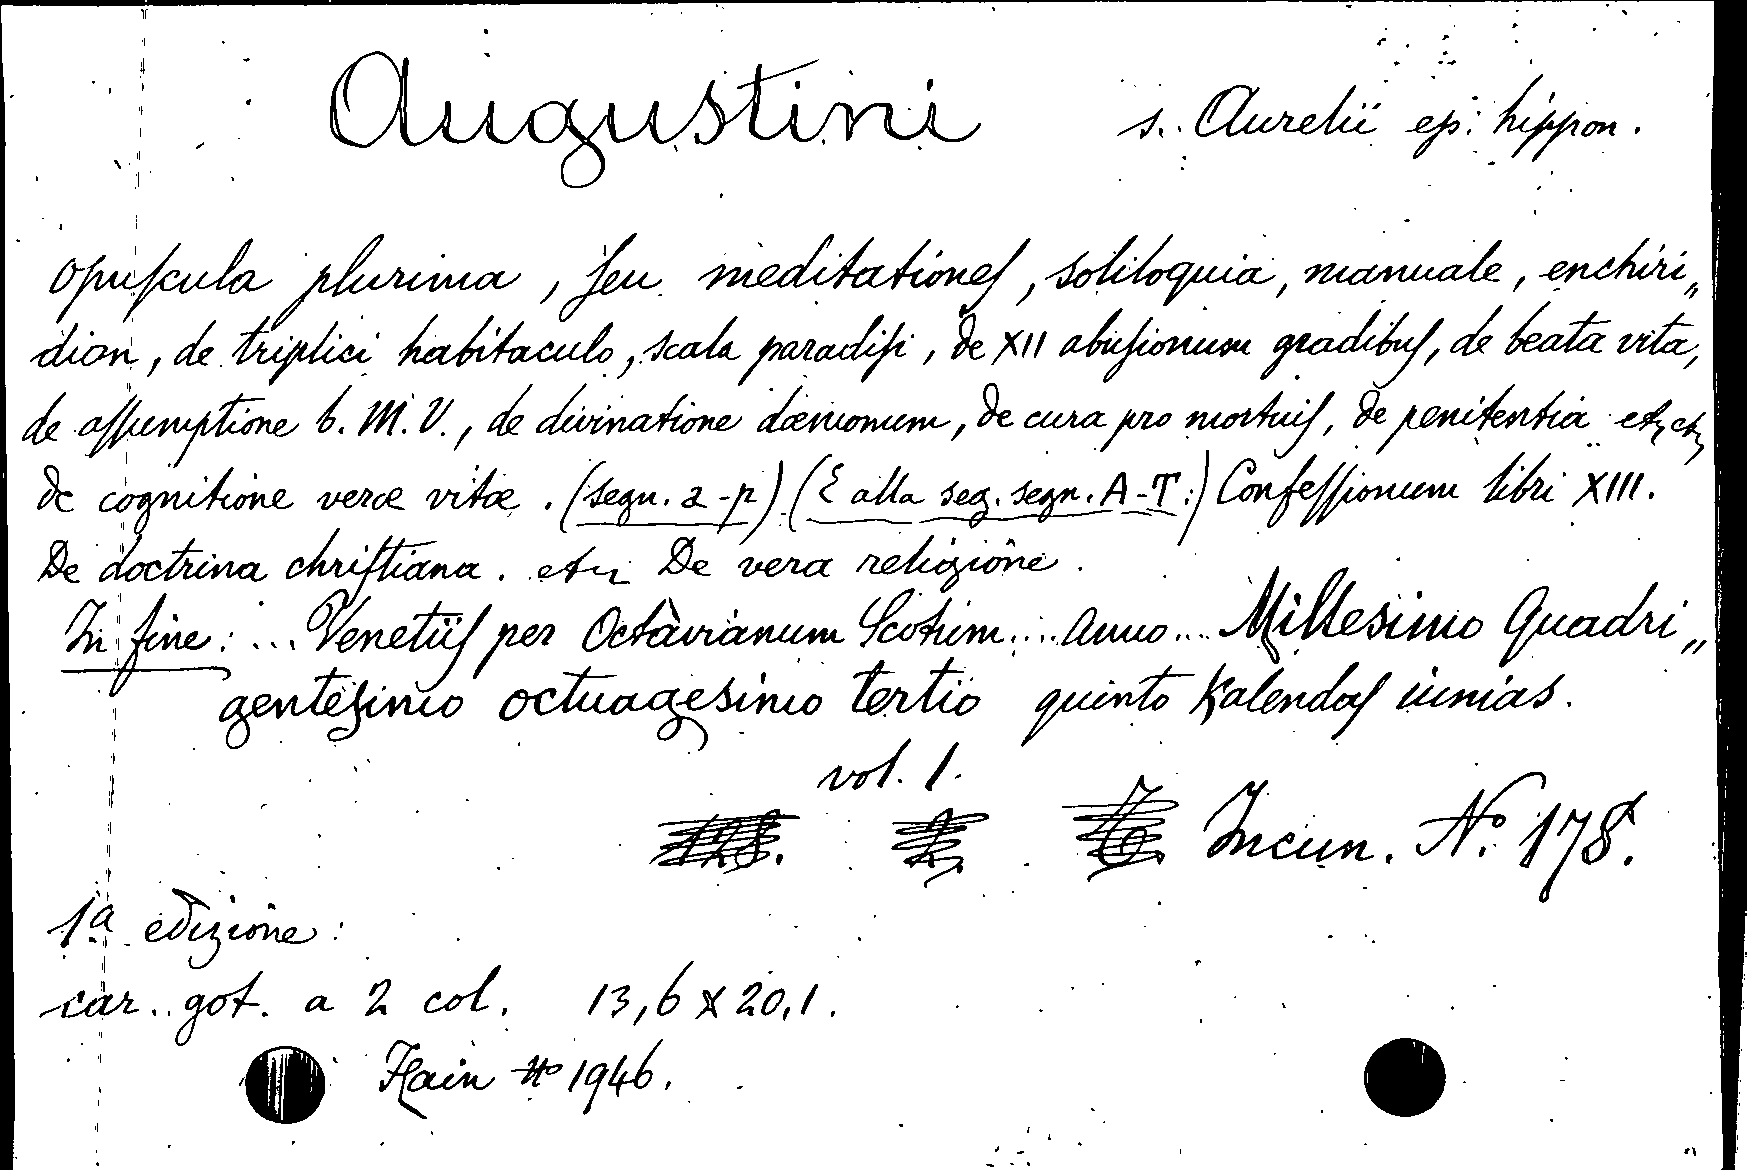 Augustini s. Aurelii ep: hippon.
opuſcula plurima, ſeu meditationeſ, soliloquia, manuale, enchiri„
dion, de triplici habitaculo, scala paradiſi, de XII abuſionum gradibuſ, de beata vita,
de aſſumptione b. M. V., de divinatione dæmonum, de cura pro mortuiſ, de penitentia etc, etc,
de cognitione veræ vitæ. (segn. a-p) (E alla seg. segn. A-T:) Confeſſionum libri XIII.
De doctrina chriſtiana. etc De vera religione.
In fine: ... Venetiiſ per Octavianum Scotum.... Anno.... Millesimo Quadri„
genteſimo octuagesimo tertio quinto Kalendaſ iunias.
vol. 1.
Incun. Nº 178.
1ª edizione:
car. got. a 2 col. 13,6 x 20,1.
Hain Nº 1946.